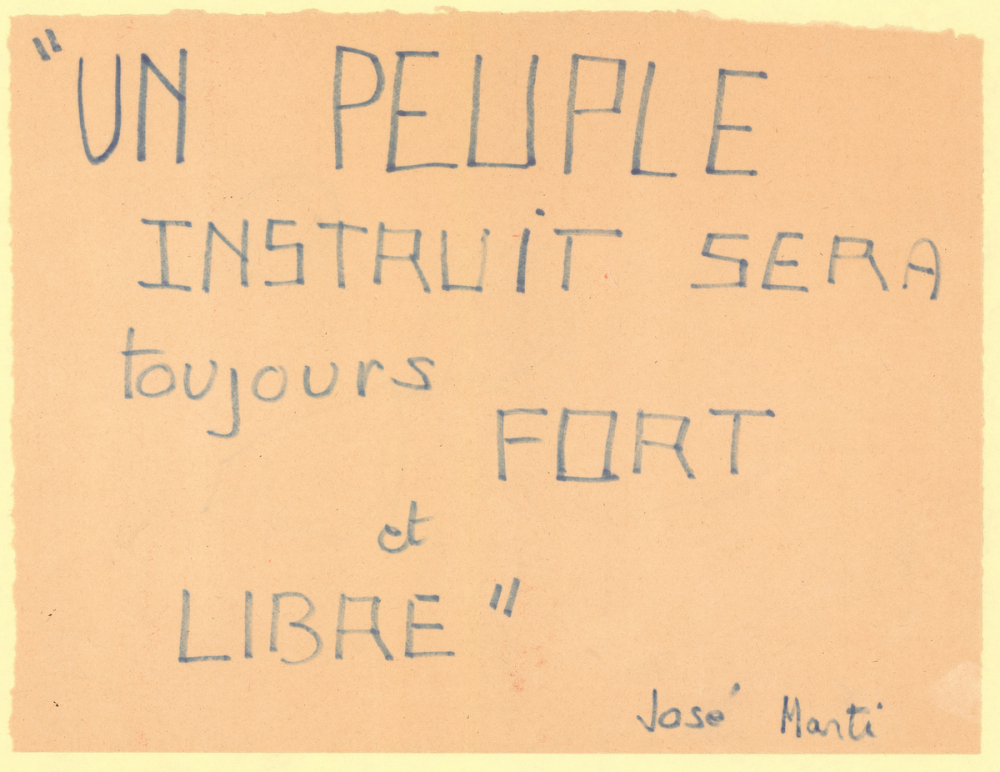 "UN PEUPLE
INSTRUIT SERA
toujours
FORT
et
LIBRE"
José Marti